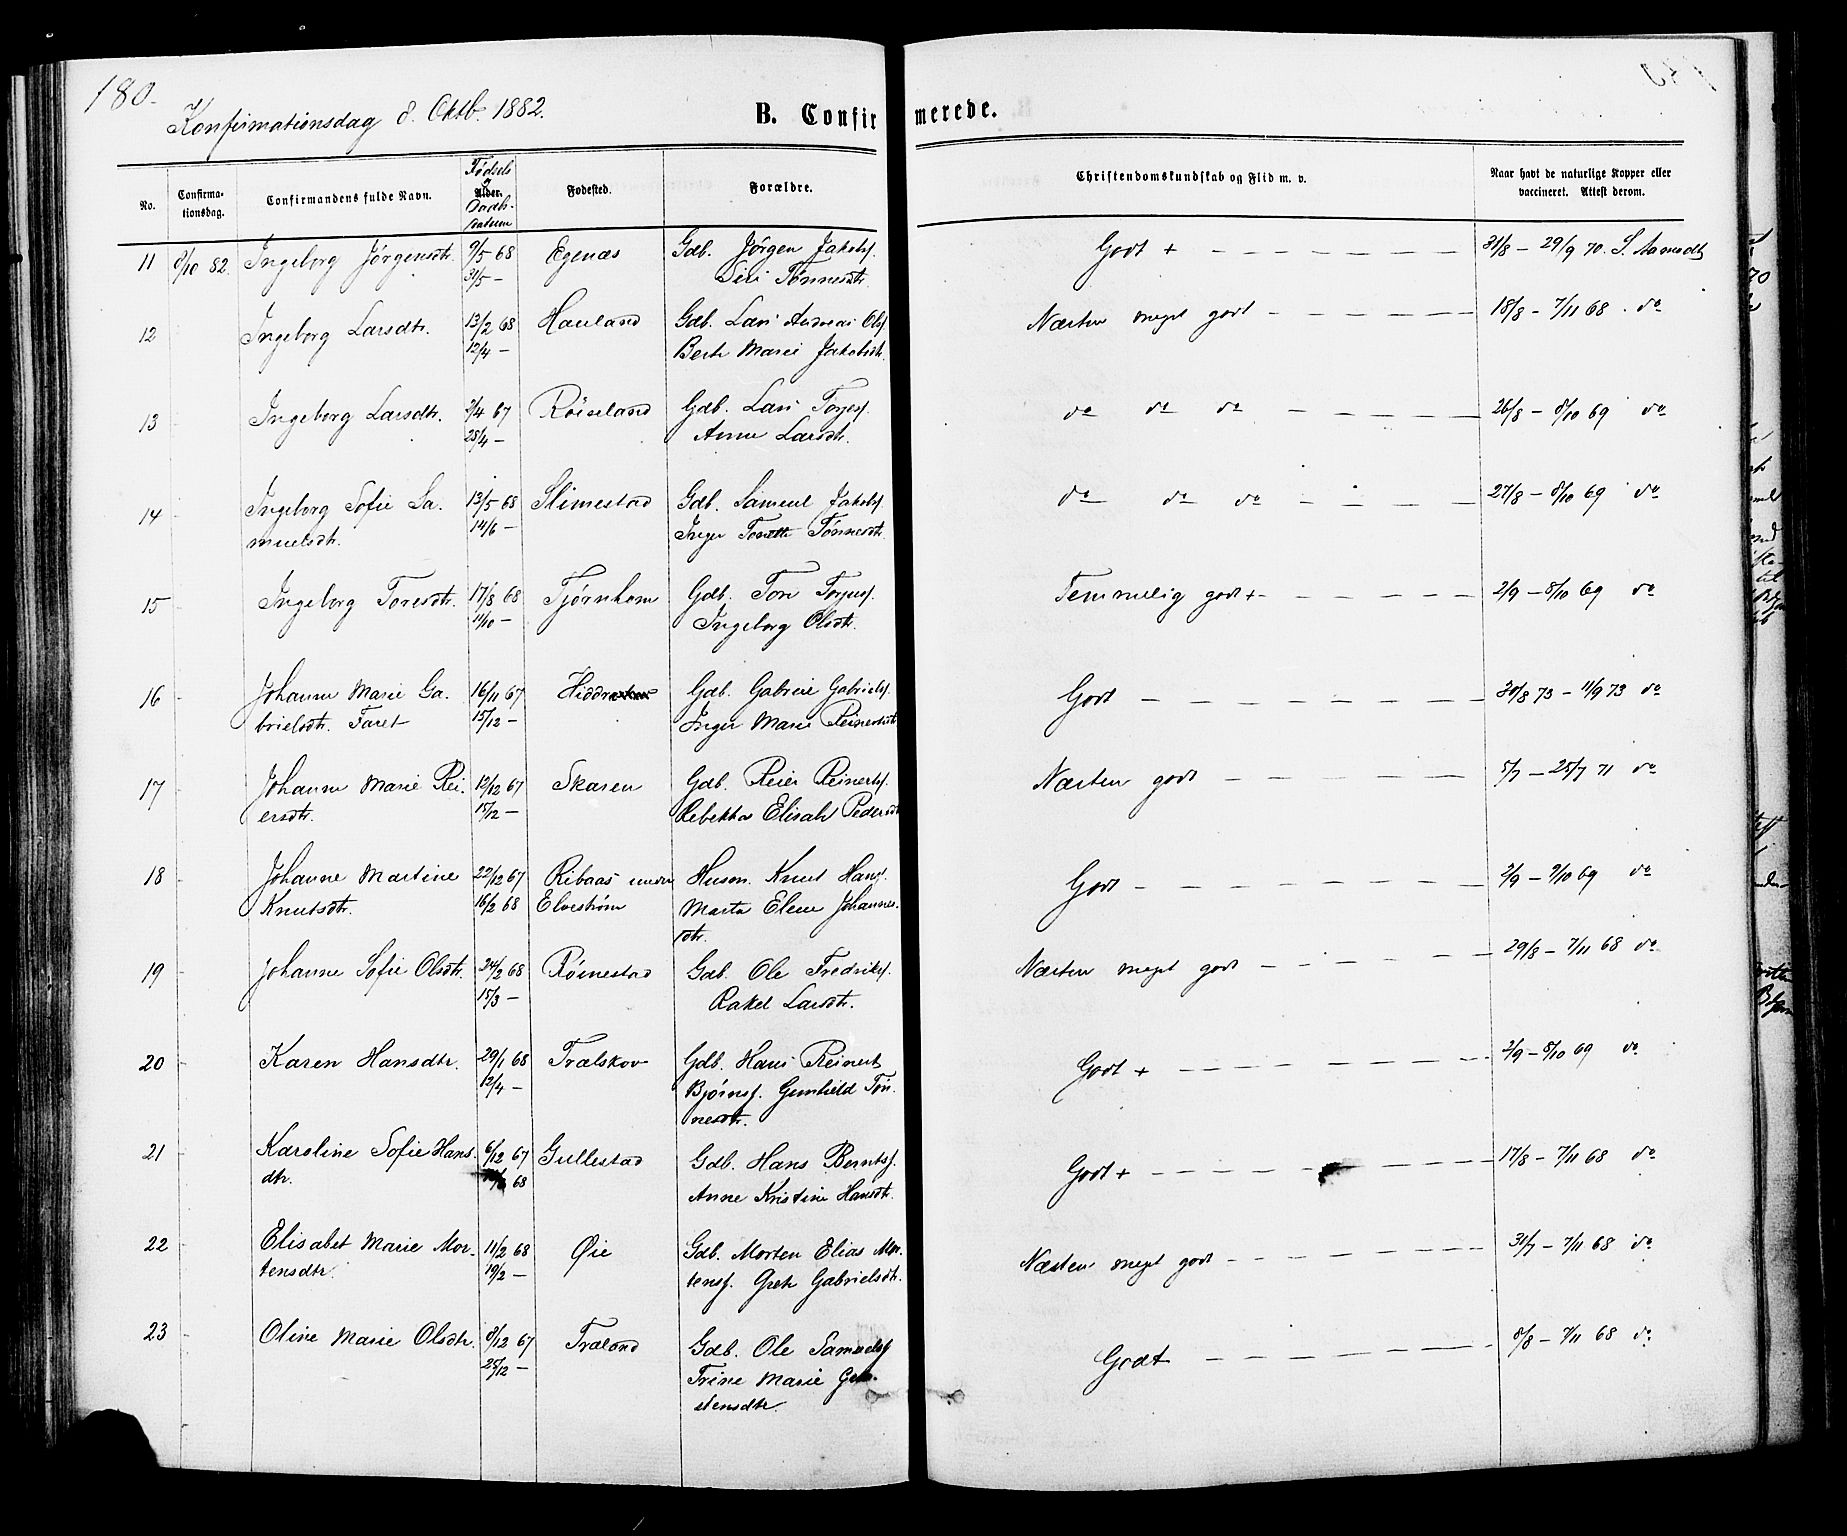 180.
Konfirmationsdag 8. Oktb. 1882.
B. Confirmerede.
No.
Confirmationsdag.
Confirmandens fulde Navn.
Fødsels og Alder. Daabsdatum
Fødested.
Forældre.
Christendomskundskab og Flid m. v.
Naar havt de naturlige Kopper eller vaccineret. Attest derom.
11 8/10 82. Ingeborg Jørgensdtr. 9/5 68 Egenæs Gdb. Jørgen Jakobsf. Godt + — — — 31/8 – 29/9 70. S. Aamodt
31/5 — Siri Tønnesdtr.
12 Ingeborg Larsdtr. 13/2 68 Hauland Gdb. Lars Andreas Olsf. Næsten meget godt — — — 18/8 – 7/11 68. do
12/4 — Berte Marie Jakobsdtr.
13 Ingeborg Larsdtr. 2/4 67 Røiseland Gdb. Lars Torjesf. do do do — — — 26/8 – 8/10 69 do
28/4 — Anne Larsdtr.
14 Ingeborg Sofie Sa- 13/5 68 Slimestad Gdb. Samuel Jakobsf. do do do — — — 27/8 – 8/10 69 do
muelsdtr. 14/6 — Inger Tonette Tønnesdtr.
15 Ingeborg Toresdtr. 17/8 68 Tjørnhom Gdb. Tore Torjusf. Temmelig godt + — — — 2/9 – 8/10 69 do
11/10 — Ingeborg Olsdtr.
16 Johanne Marie Ga- 16/11 67 Hiddra Gdb. Gabriel Gabrielsf. Godt — — — 30/8 73 – 11/9 73 do
brielsdtr. Faret 15/12 — Inger Marie Reinertsdtr.
17 Johanne Marie Rei- 12/12 67 Skaren Gdb. Reier Reinertsf. Næsten godt — — — 5/7 – 25/7 71 do
ersdtr. 15/12 — Rebekka Elisab. Pedersdtr
18 Johanne Martine 22/12 67 Ribaas under Husm. Knut Hansf. Godt — — — 2/9 – 9/10 69 do
Knutsdtr. 16/2 68 Elvestrøm Marta Elene Johannes-
dtr.
19 Johanne Sofie Olsdtr. 24/2 68 Rømestad Gdb. Ole Fredriksf. Næsten meget godt — — — 29/8 – 7/11 68 do
15/3 — Rakel Larsdtr.
20 Karen Hansdtr. 29/1 68 Trælskov Gdb. Hans Reinert Godt + — — — 2/9 – 8/10 69 do
12/4 — Bjørnsf. Gunhild Tøn-
nesdtr.
21 Karoline Sofie Hans- 6/12 67 Gullestad Gdb. Hans Berntsf. Godt + — — — 17/8 – 7/11 68 do
dtr. 68 Anne Kristine Hansdtr.
22 Elisabet Marie Mor- 11/2 68 Øie Gdb. Morten Elias Mor- Næsten meget godt — — — 31/7 – 7/11 68 do
tensdtr. 19/2 — tensf. Grete Gabrielsdtr.
23 Oline Marie Olsdtr. 8/12 67 Træland Gdb. Ole Samuelsf Godt — — — 8/8 – 7/11 68 do
25/12 — Trine Marie
stensdtr.